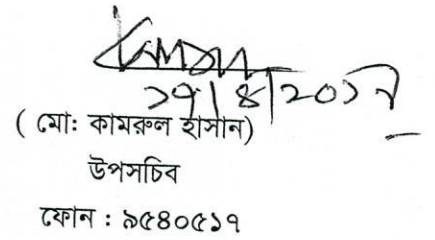 ১৭/৪/২০১৭
( মো: কামরুল হাসান)
উপসচিব
ফোন : ৯৫৪০৫১৭